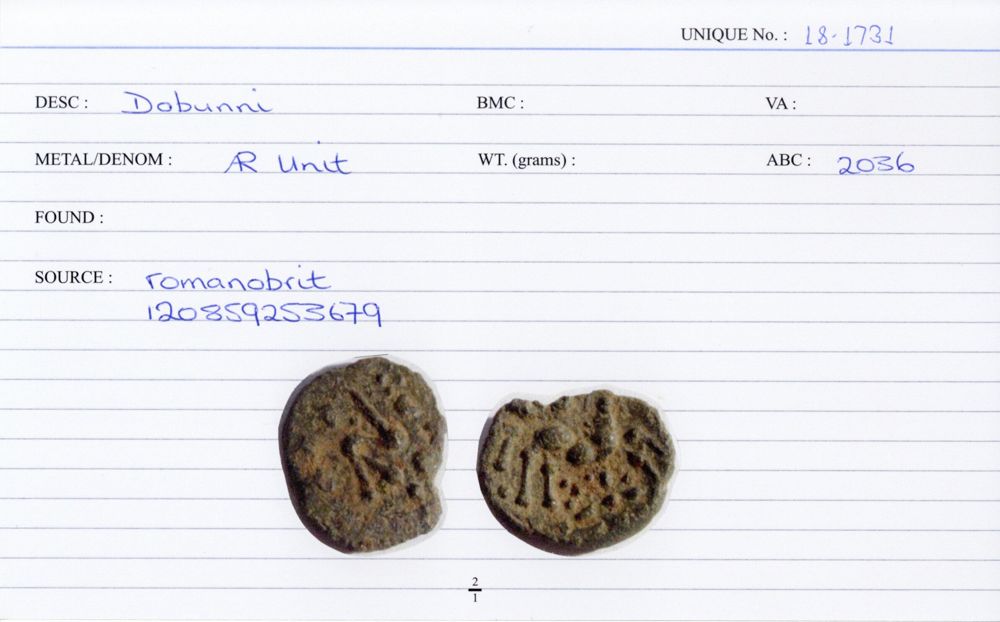 UNIQUE No. : 18-1731
DESC : Dobunni BMC : VA :
METAL/DENOM : AR Unit WT. (grams) : ABC : 2036
FOUND :
SOURCE : romanobrit
120859253679
2
1